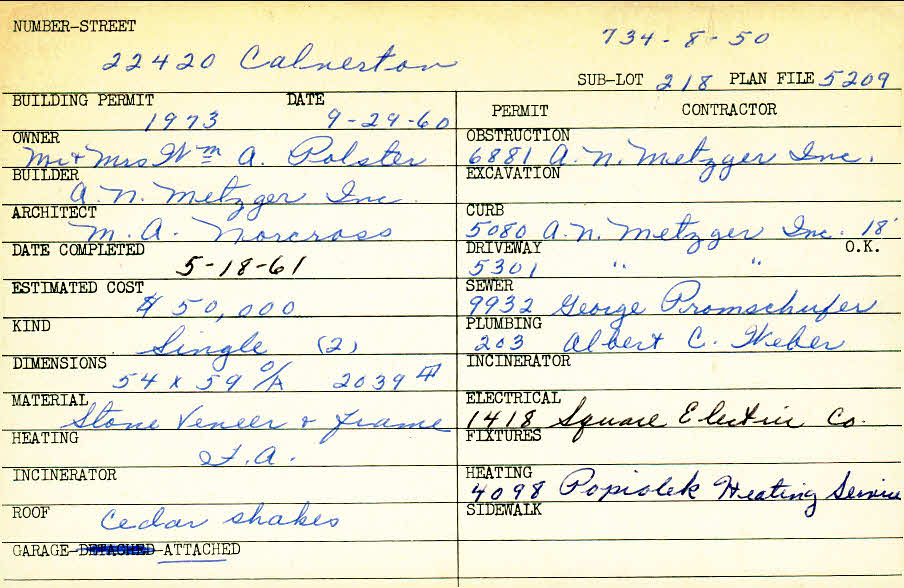 NUMBER-STREET
22420 Calverton
734-8-50
SUB-LOT 218 PLAN FILE 5209
BUILDING PERMIT DATE
1973 9-29-60
OWNER
Mr + Mrs Wm A. Polster
BUILDER
A. N. Metzger Inc.
ARCHITECT
M. A. Norcross
DATE COMPLETED
5-18-61
ESTIMATED COST
$50,000
KIND
Single (2)
DIMENSIONS
54 x 59 O/A 2039 #
MATERIAL
Stone Veneer & frame
HEATING
F.A.
INCINERATOR
ROOF Cedar shakes
GARAGE-DETACHED-ATTACHED
PERMIT CONTRACTOR
OBSTRUCTION
6881 A. N. Metzger Inc.
EXCAVATION
CURB
5080 A. N. Metzger Inc. 18'
DRIVEWAY O.K.
5301 " "
SEWER
9932 George Promschufer
PLUMBING
203 Albert C. Weber
INCINERATOR
ELECTRICAL
1418 Square Electric Co.
FIXTURES
HEATING
4098 Popiolek Heating Service
SIDEWALK